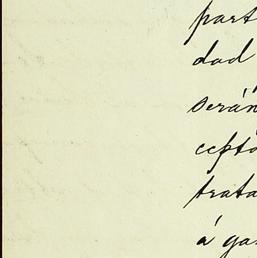 part
dad
serán
cepto
trata
á ga